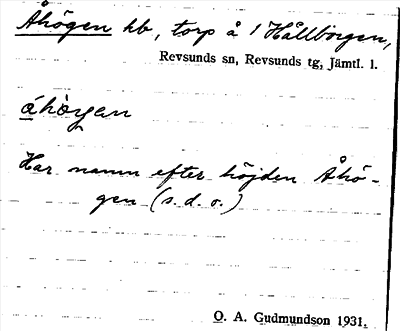 Åhögen hb, torp å 1 Hållbörgen,
Revsunds sn, Revsunds tg, Jämtl. l.
Har namn efter höjden Åhö-
gen (s. d. o.)
O. A. Gudmundson 1931.